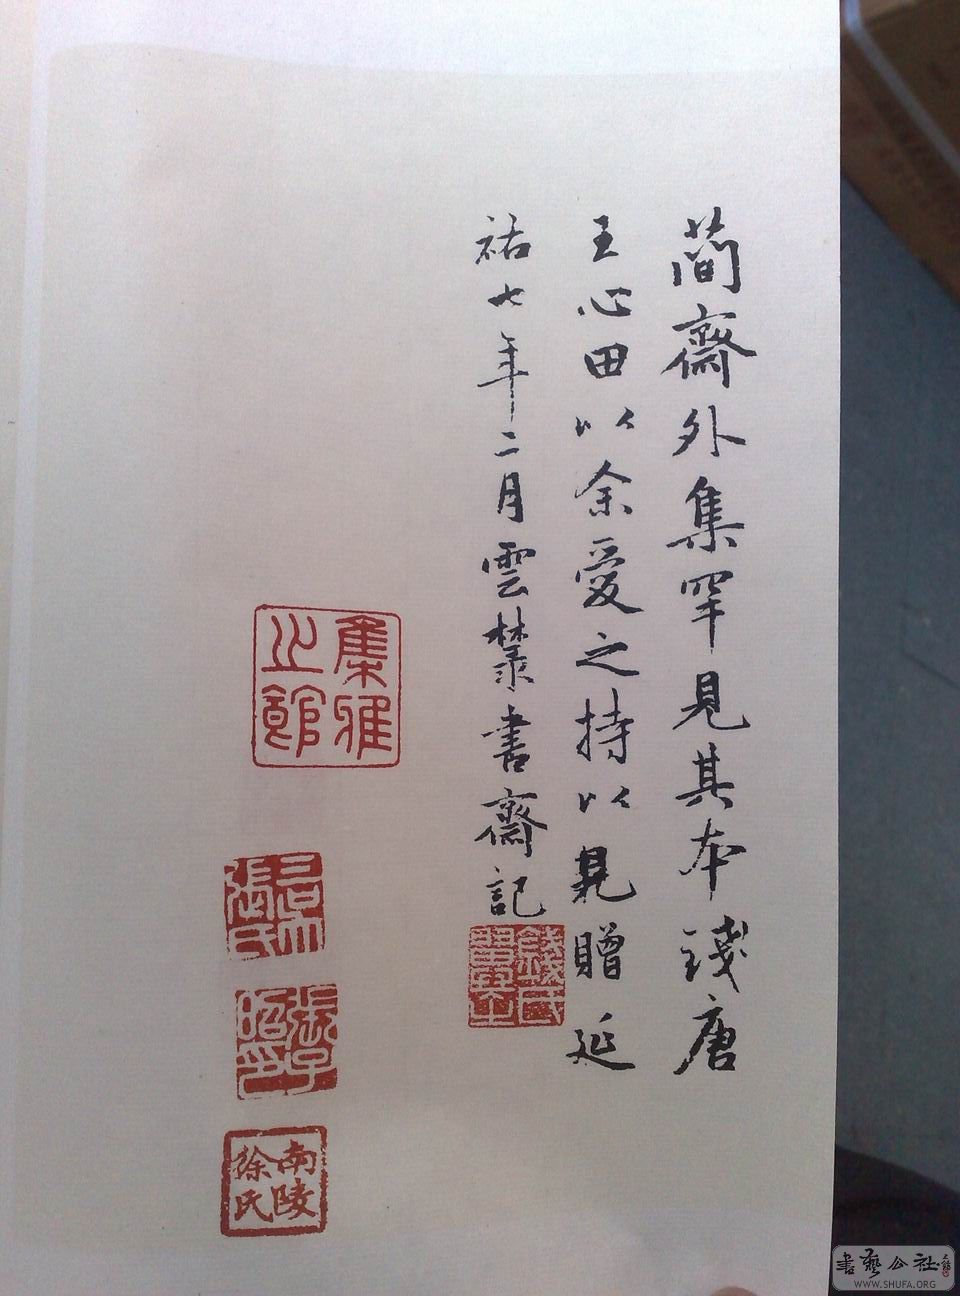 蕳齋外集罕見其本錢唐
王心田以余愛之持以見贈延
祐七年二月雲叢書齋記
錢氏
集雅
之館
張氏
張子
昭印
南陵
徐氏
書藝公社
WWW.SHUFA.ORG